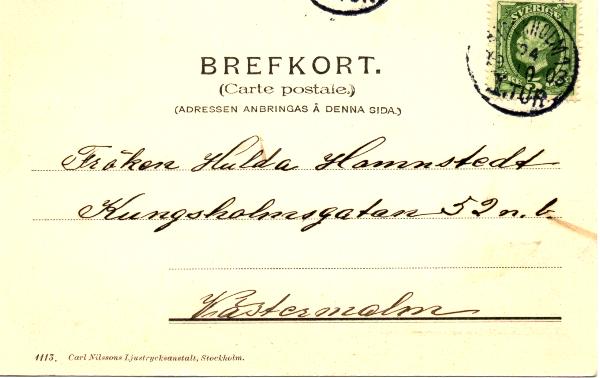 SVERIGE
BREFKORT.
(Carte postale.)
(ADRESSEN ANBRINGAS Å DENNA SIDA.)
Fröken Hulda Hamnstedt
Kungsholmsgatan 52 n. b.
Västermalm
1113. Carl Nilssons Ljustrycksanstalt, Stockholm.